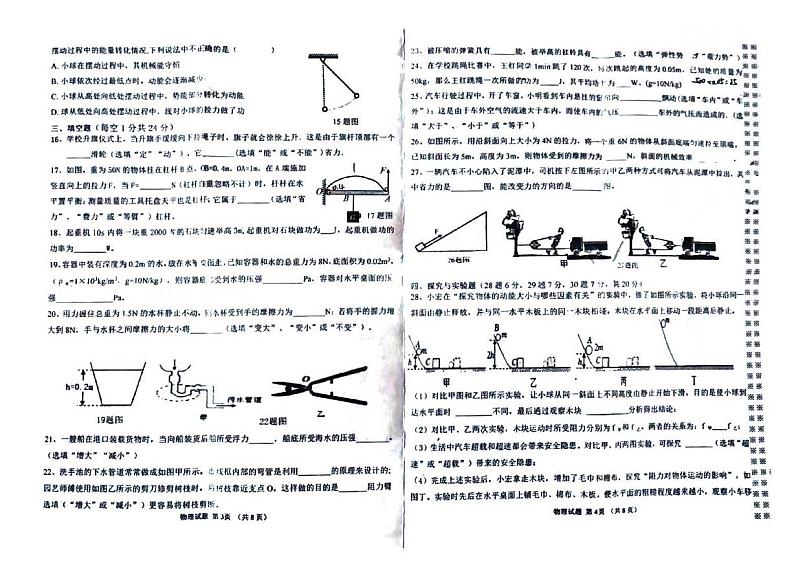 摆动过程中的能量转化情况,下列说法中不正确的是（ ）
A. 小球在摆动过程中，其机械能守恒
B. 小球依次经过最低点时，动能会逐渐减少
C. 小球从高处向低处摆动过程中，势能部分转化为动能
D. 球从低处向高处摆动过程中，线对小球的拉力做了功
15题图
三、填空题（每空 1 分共 24 分）
16、学校升旗仪式上，当升旗手缓缓向下拉绳子时，旗子就会徐徐上升。这是由于旗杆顶部有一个
______滑轮（选填“定”“动”），它______（选填“能”或“不能”)省力.
17、如图，重为 50N 的物体挂在杠杆 B 点，OB=0.4m，OA=1m. 在 A 端施加
竖直向上的拉力F，当 F=______N（杠杆自重忽略不计）时，杠杆在水
平置平衡；测量质量的工具托盘天平也是杠杆，它属于______（选填“省
力”、“费力”或“等臂”）杠杆.
F
O
B
A
G
17题图
18、起重机 10s 内将一块重 2000 N 的石块匀速举高 3m,起重机对石块做功为____J，起重机做功的
功率为______W。
19、容器中装有深度为 0.2m 的水，放在水平桌面上,已知容器和水的总重力为 8N,底面积为 0.02m²，
（ρ水=1×10³kg/m³，g=10N/kg），则容器底部受到水的压强______Pa，容器对水平桌面的压
强______Pa.
20、用力握住总重为 1.5N 的水杯静止不动，则水杯受到手的摩擦力为______N；若将手的握力增
大到 8N，手与水杯之间摩擦力的大小将______（选填“变大”、“变小”或“不变”）。
h=0.2m
19题图
污水管道
甲
22题图
O
乙
21、一艘船在港口装载货物时，当向船装货后船所受浮力______，船底所受海水的压强______。
（选填“增大”“减小”）
22、洗手池的下水管道常常做成如图甲所示，虚线框内部的弯管是利用______的原理来设计的；
园艺师傅使用如图乙所示的剪刀修剪树枝时，将树枝靠近支点 O，这样做的目的是______阻力臂
选填（“增大”或“减小”）更容易将树枝剪断。
物理试题 第 3页 （共 8 页）
23、被压缩的弹簧具有______能，被举高的杠铃具有______能。（选填“弹性势”“重力势”）
24、在学校跳绳比赛中，王红同学 1min 跳了 120 次，每次跳起的高度为 0.05m. 已知她的质量为
50kg，那么王红跳绳一次所做的功为____J，其平均功率为____W。(g=10N/kg)
25、汽车行驶过程中，开了车窗，小明看到车内悬挂的窗帘向______飘动(选填“车内”或“车
外”)；这是由于车外空气的流速大于车内，而使车内的气压______车外的气压而造成的.（选
填“大于”、“小于”或“等于”）
26、如图所示，用沿斜面向上大小为 4N 的拉力，将一个重 6N 的物体从斜面底端匀速拉至顶端.
已知斜面长为 5m，高度为 3m，则物体受到的摩擦力为____N，斜面的机械效率______
27、一辆汽车不小心陷入了泥潭中，司机按下在图所示的甲乙两种方式可将汽车从泥潭中拉出，其
中省力的是______图，能改变力的方向的是______图.
F
26题图
甲
27题图
乙
四、探究与实验题（28 题 6 分，29 题 7 分，30 题 7 分，共 20 分）
28、小宏在“探究物体的动能大小与哪些因素有关”的实验中，做了如图所示实验，将小球沿同一
斜面由静止释放，并与同一水平木板上的同一木块相碰，木块在水平面上移动一段距离后静止。
A
m
h
甲
B
m
2h
乙
A
2m
h
丙
丁
（1）对比甲图和乙图所示实验，让小球从同一斜面上不同高度由静止开始下滑，目的是使小球到
达水平面时______不同，最后通过观察木块______分析得出结论；
（2）对比甲、乙两次实验，木块运动时所受阻力分别为 f甲 和 f乙，两者的关系为：f甲____f乙；
（3）生活中汽车超载和超速都会带来安全隐患。对比甲、丙两图实验，可探究______（选填“超
速”或“超载”）带来的安全隐患；
（4）完成上述实验后，小宏拿走木块，增加了毛巾和棉布，探究“阻力对物体运动的影响”，如
图丁。实验时先后在水平桌面上铺毛巾、棉布、木板，使水平面的粗糙程度越来越小，观察小车移
物理试题 第 4页 （共 8 页）